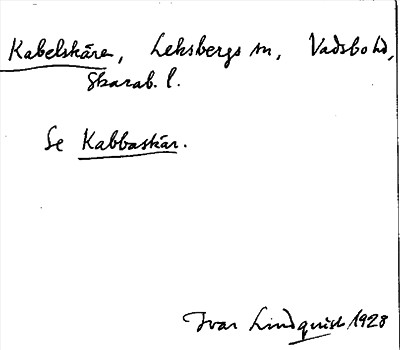 Kabelskäre, Leksbergs sn, Vadsbo hd,
Skarab. l.
Se Kabbaskär.
Ivar Lindquist 1928